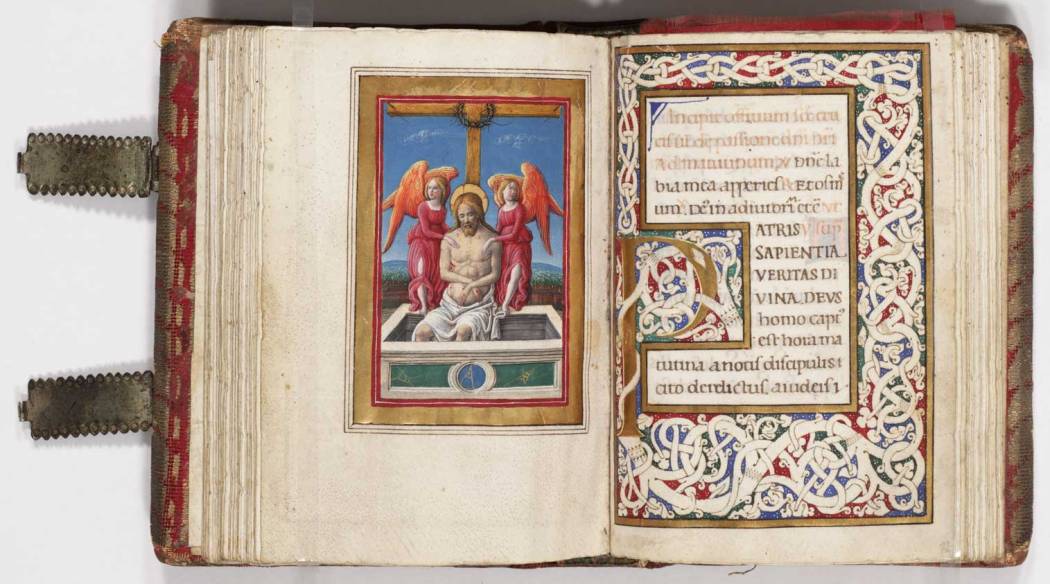 Incipit officium scē cru
cis sū de passione dnī nrī
Ad matutinum ℣ Dñe la
bia mea apperies ℞ Et os m̄
um ℣ Ds̄ in adiutor̄ etē
PATRIS
SAPIENTIA
VERITAS DI
VINA, DEVS
homo capt᷒
est hora ma
tutina a notis discipulis
cito derelictus, a iudeis